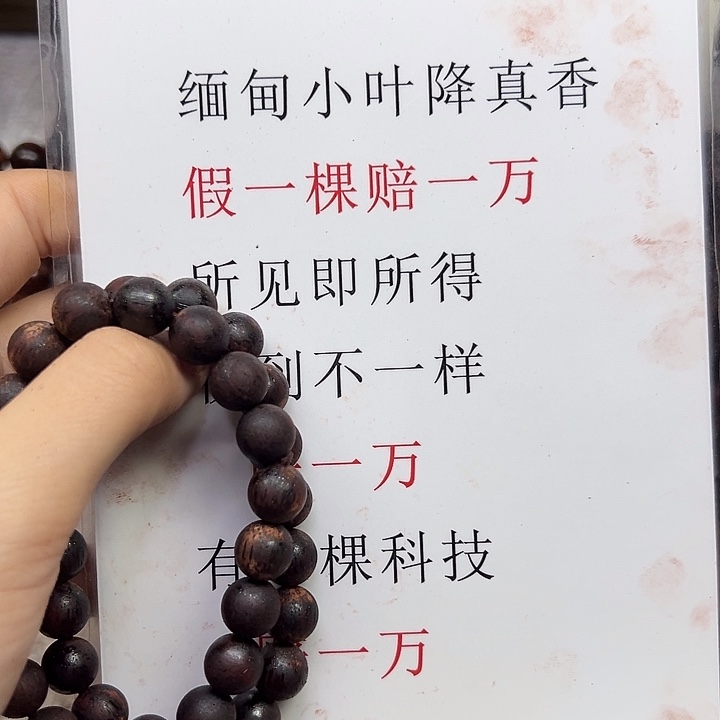 缅甸小叶降真香
假一棵赔一万
所见即所得
到不一样
一万
有 棵科技
一万